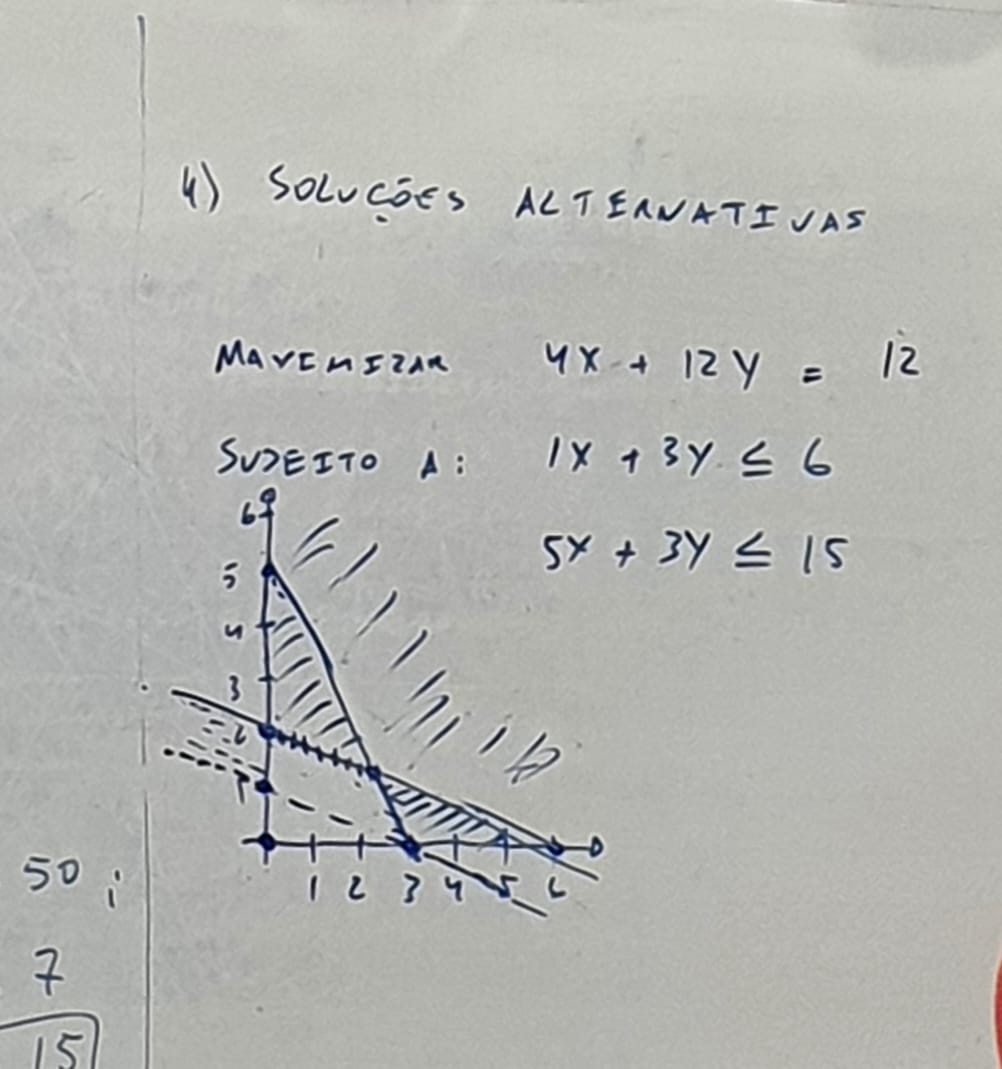 4) SOLUÇÕES ALTERNATIVAS
MAXIMIZAR 4X + 12Y = 12
SUJEITO A: 1X + 3Y ≤ 6
5X + 3Y ≤ 15
6
5
4
3
2
1
1 2 3 4 5 6
50 i
7
15